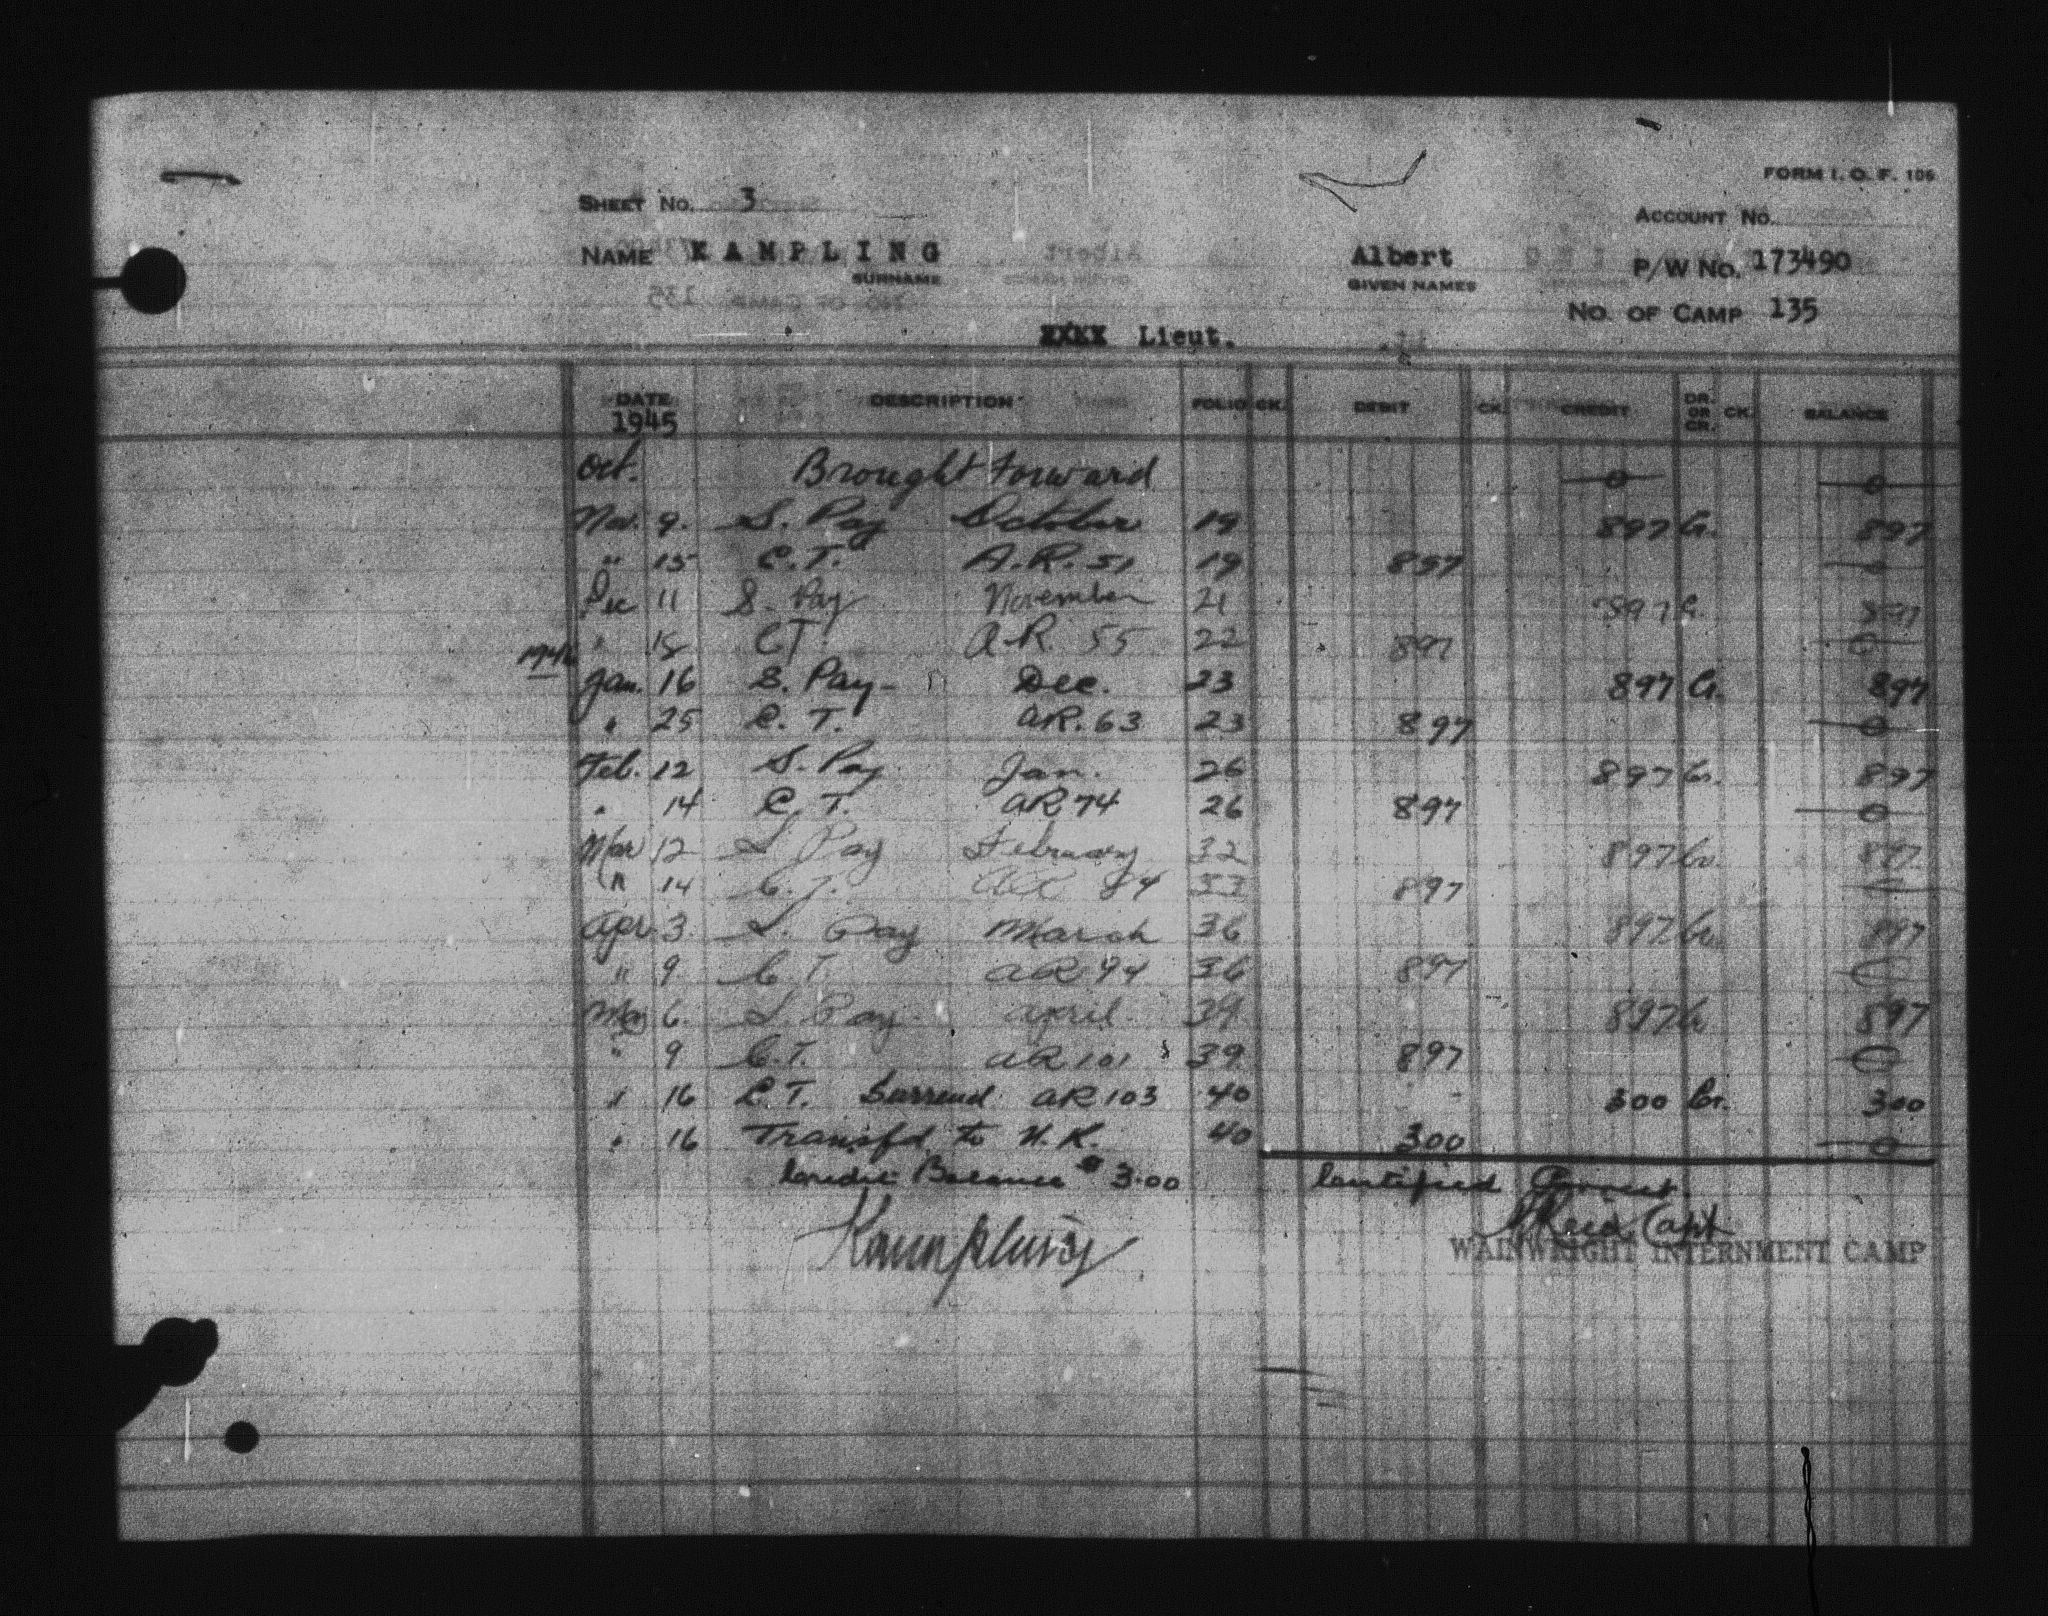 FORM I. O. F. 106
SHEET No. 3
ACCOUNT No.
NAME KAMPLING Albert P/W No. 173490
SURNAME GIVEN NAMES
No. OF CAMP 135
XXXX Lieut.
DATE DESCRIPTION FOLIO CK. DEBIT CK. CREDIT DR. OR CR. CK. BALANCE
1945
Oct. Brought Forward 0 0
Nov. 9. S. Pay October 19 897 Cr. 897
" 15 C.T. A.R. 51 19 897 0
Dec 11 S. Pay November 21 897 Cr. 897
" 15 CT. A.R. 55 22 897 0
1946
Jan. 16 S. Pay - Dec. 23 897 Cr. 897
" 25 C. T. AR. 63 23 897 0
Feb. 12 S. Pay Jan. 26 897 Cr. 897
" 14 C. T. AR 74 26 897 0
Mar 12 S Pay February 32 897 Cr. 897
" 14 C. T. AR 84 33 897 0
Apr 3. S. Pay March 36 897 Cr. 897
" 9 C.T. AR 94 36 897 0
May 6. S. Pay April 39. 897 Cr 897
" 9 C.T. AR 101 39. 897 0
" 16 C.T. Surrend AR 103 40 300 Cr. 300
" 16 Transfd. to U.K. 40 300 0
Credit Balance $3.00 Certified Correct.
Kampling Capt
WAINWRIGHT INTERNMENT CAMP